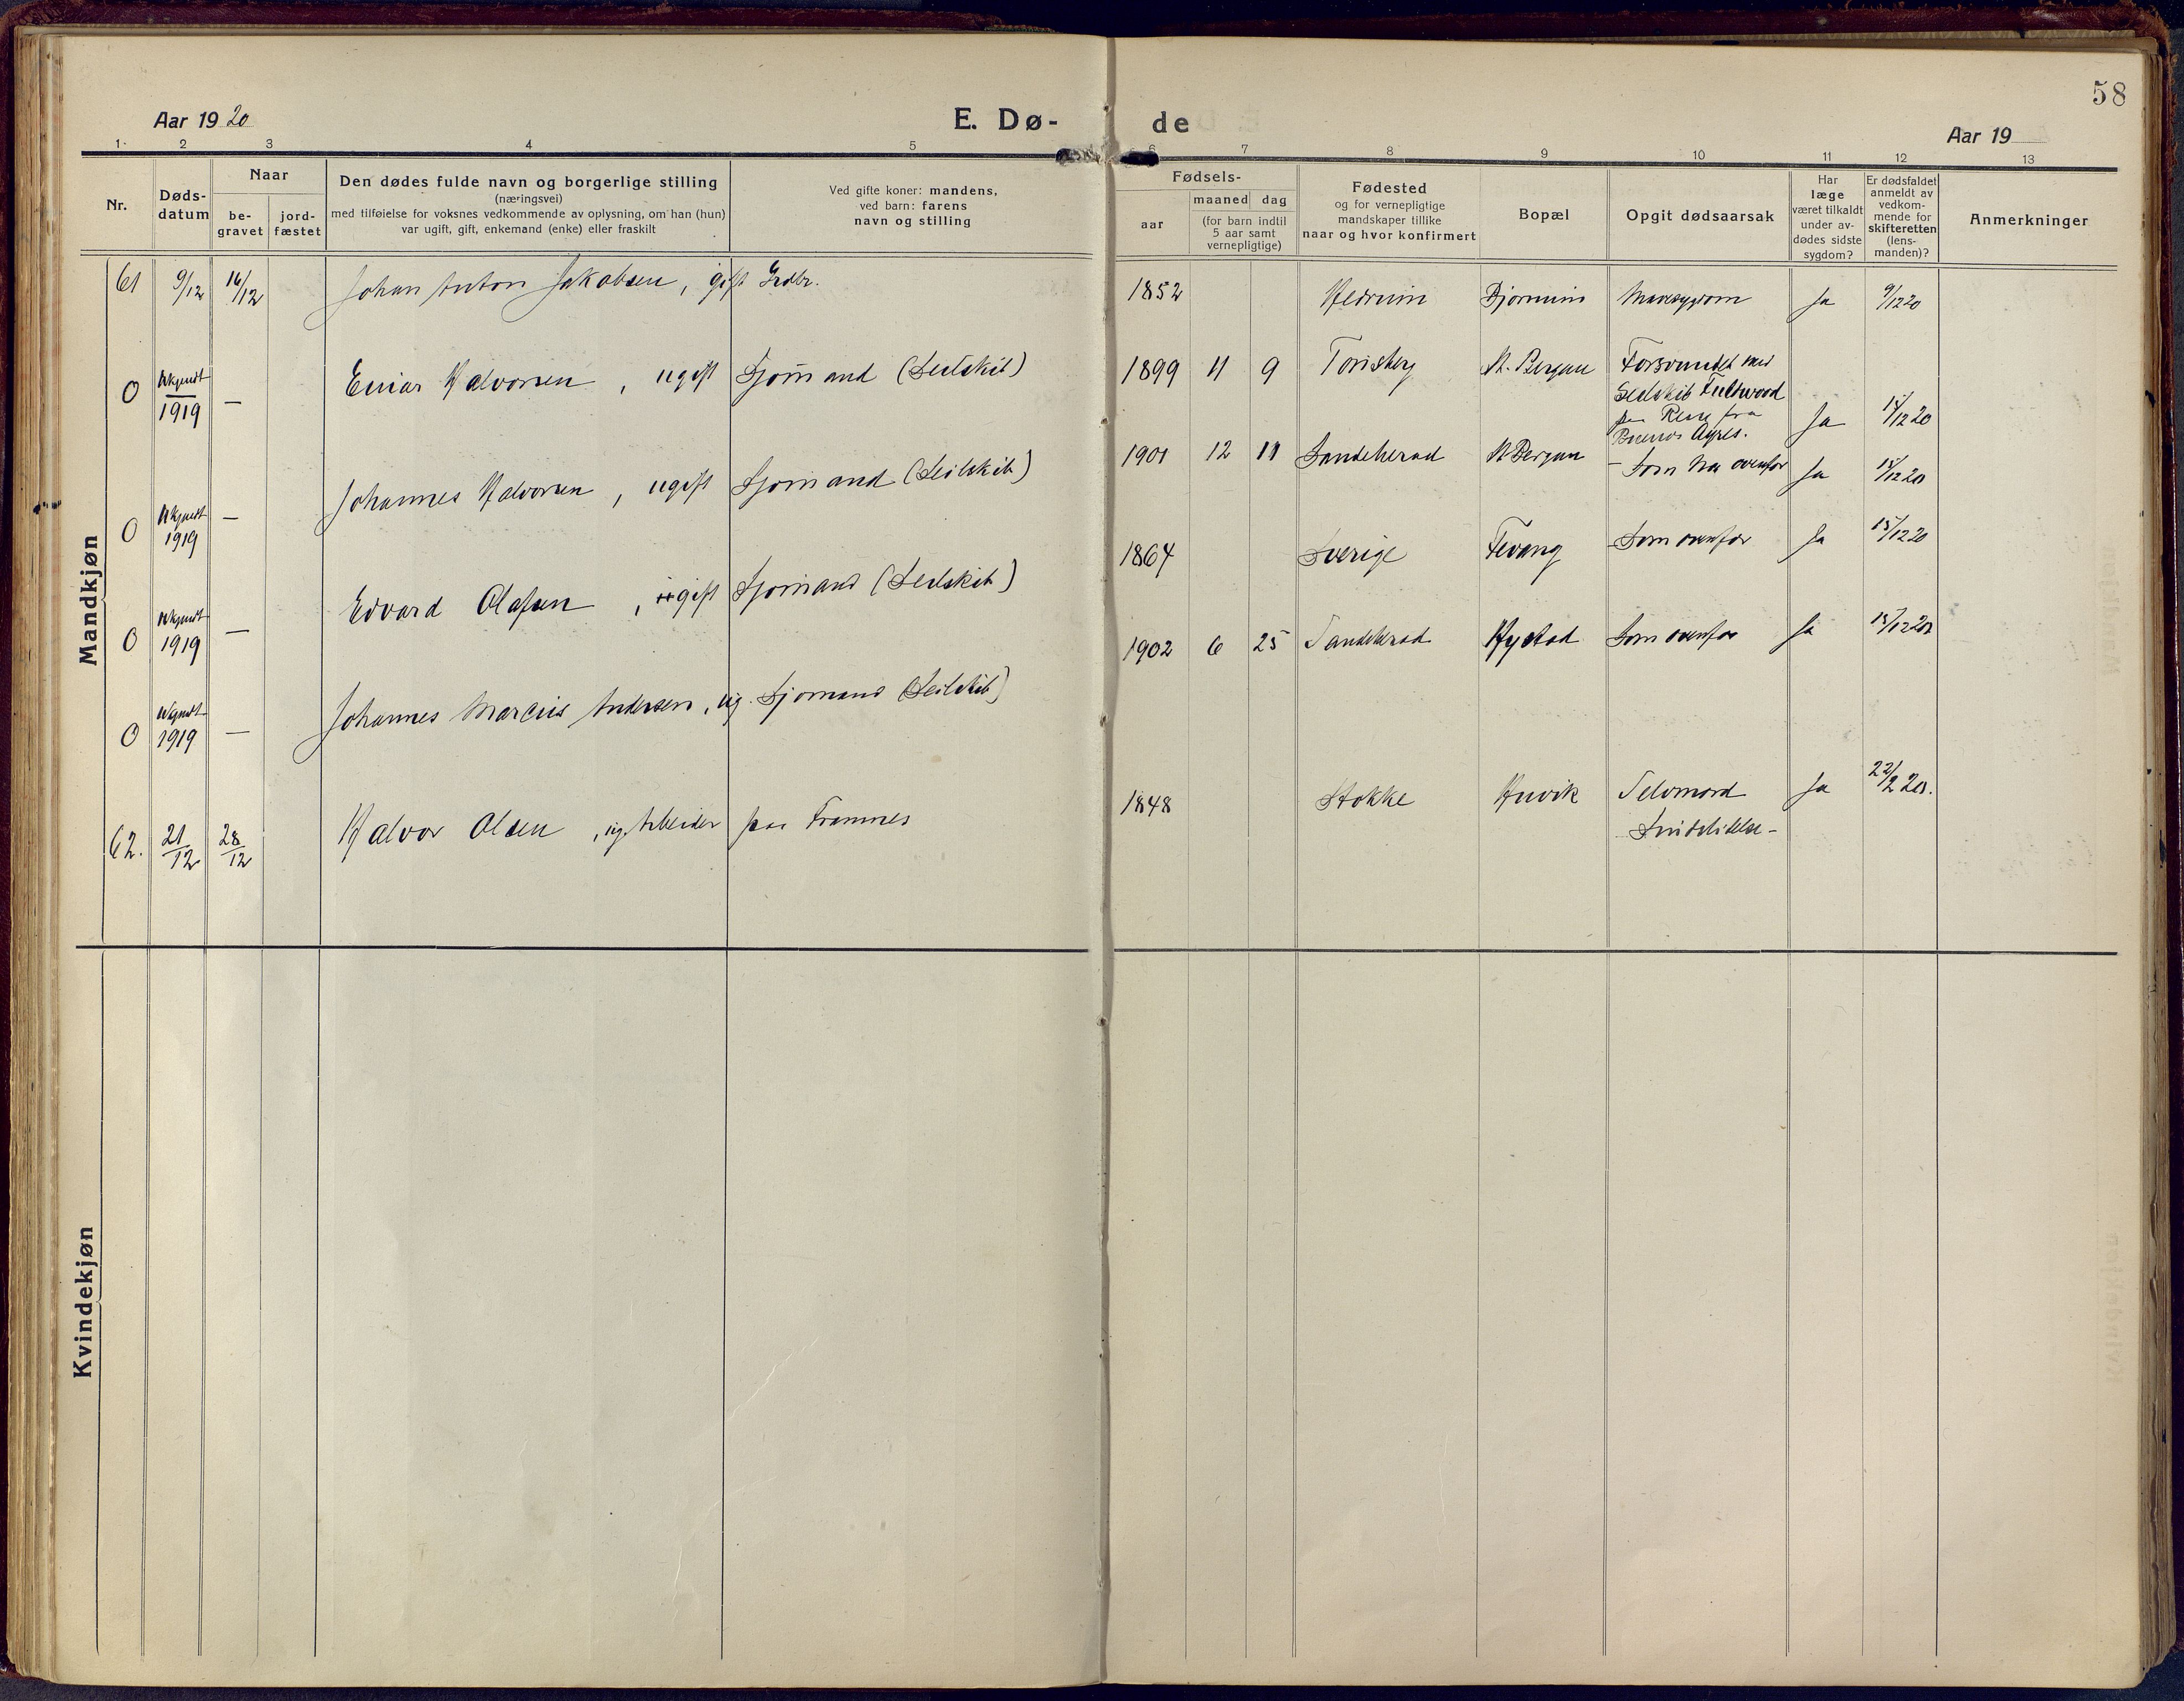 58
Aar 1920
E. Dø-
de
Aar 19
1 2 3 4 5 6 7 8 9 10 11 12 13
Nr.
Døds-
datum
Naar
be-
gravet
jord-
fæstet
Den dødes fulde navn og borgerlige stilling
(næringsvei)
med tilføielse for voksnes vedkommende av oplysning, om han (hun)
var ugift, gift, enkemand (enke) eller fraskilt
Ved gifte koner: mandens,
ved barn: farens
navn og stilling
Fødsels-
aar
maaned dag
(for barn indtil
5 aar samt
vernepligtige)
Fødested
og for vernepligtige
mandskaper tillike
naar og hvor konfirmert
Bopæl
Opgit dødsaarsak
Har
læge
været tilkaldt
under av-
dødes sidste
sygdom?
Er dødsfaldet
anmeldt av
vedkom-
mende for
skifteretten
(lens-
manden)?
Anmerkninger
Mandkjøn
61 9/12 16/12 Johan Anton Jakobsen, gift Grdbr. 1852 Hedrum Bjørnum Mavesygdom Ja 9/12 20
0 Ukjendt 1919 — Einar Halvorsen, ugift Sjømand (Seilskib) 1899 11 9 Tønsberg N. Bergan Forsvundet med
Seilskib Fultwood
paa Reise fra
Buenos Ayres. Ja 15/12 20
0 Ukjendt 1919 — Johannes Halvorsen, ugift Sjømand (Seilskib) 1901 12 11 Sandeherad N Bergan — Som ovenfor Ja 15/12 20
0 Ukjendt 1919 — Edvard Olafsen, gift Sjømand (Seilskib) 1864 Sverige Fevang Som ovenfor Ja 15/12 20
0 Ukjendt 1919 — Johannes Marcius Andersen, ug. Sjømand (Seilskib) 1902 6 25 Sandeherad Hystad Som ovenfor Ja 15/12 20
62. 21/12 28/12 Halvor Olsen, ug. Arbeider paa Framnes 1848 Stokke Huvik Selvmord Ja 22/12 20.
Sindslidelse -
Kvindekjøn